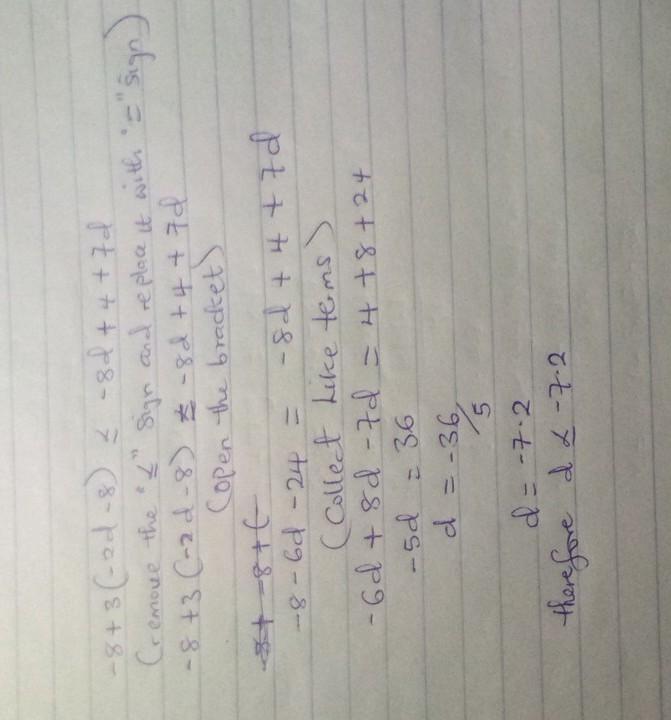 -8+3(-2d-8) ≤ -8d+4+7d
(remove the "≤" sign and replace it with "=" sign)
-8+3(-2d-8) = -8d+4+7d
(open the bracket)
-8+ -8+(-
-8-6d-24 = -8d+4+7d
(Collect Like terms)
-6d+8d-7d = 4+8+24
-5d = 36
d = -36/5
d = -7.2
therefore d < -7.2